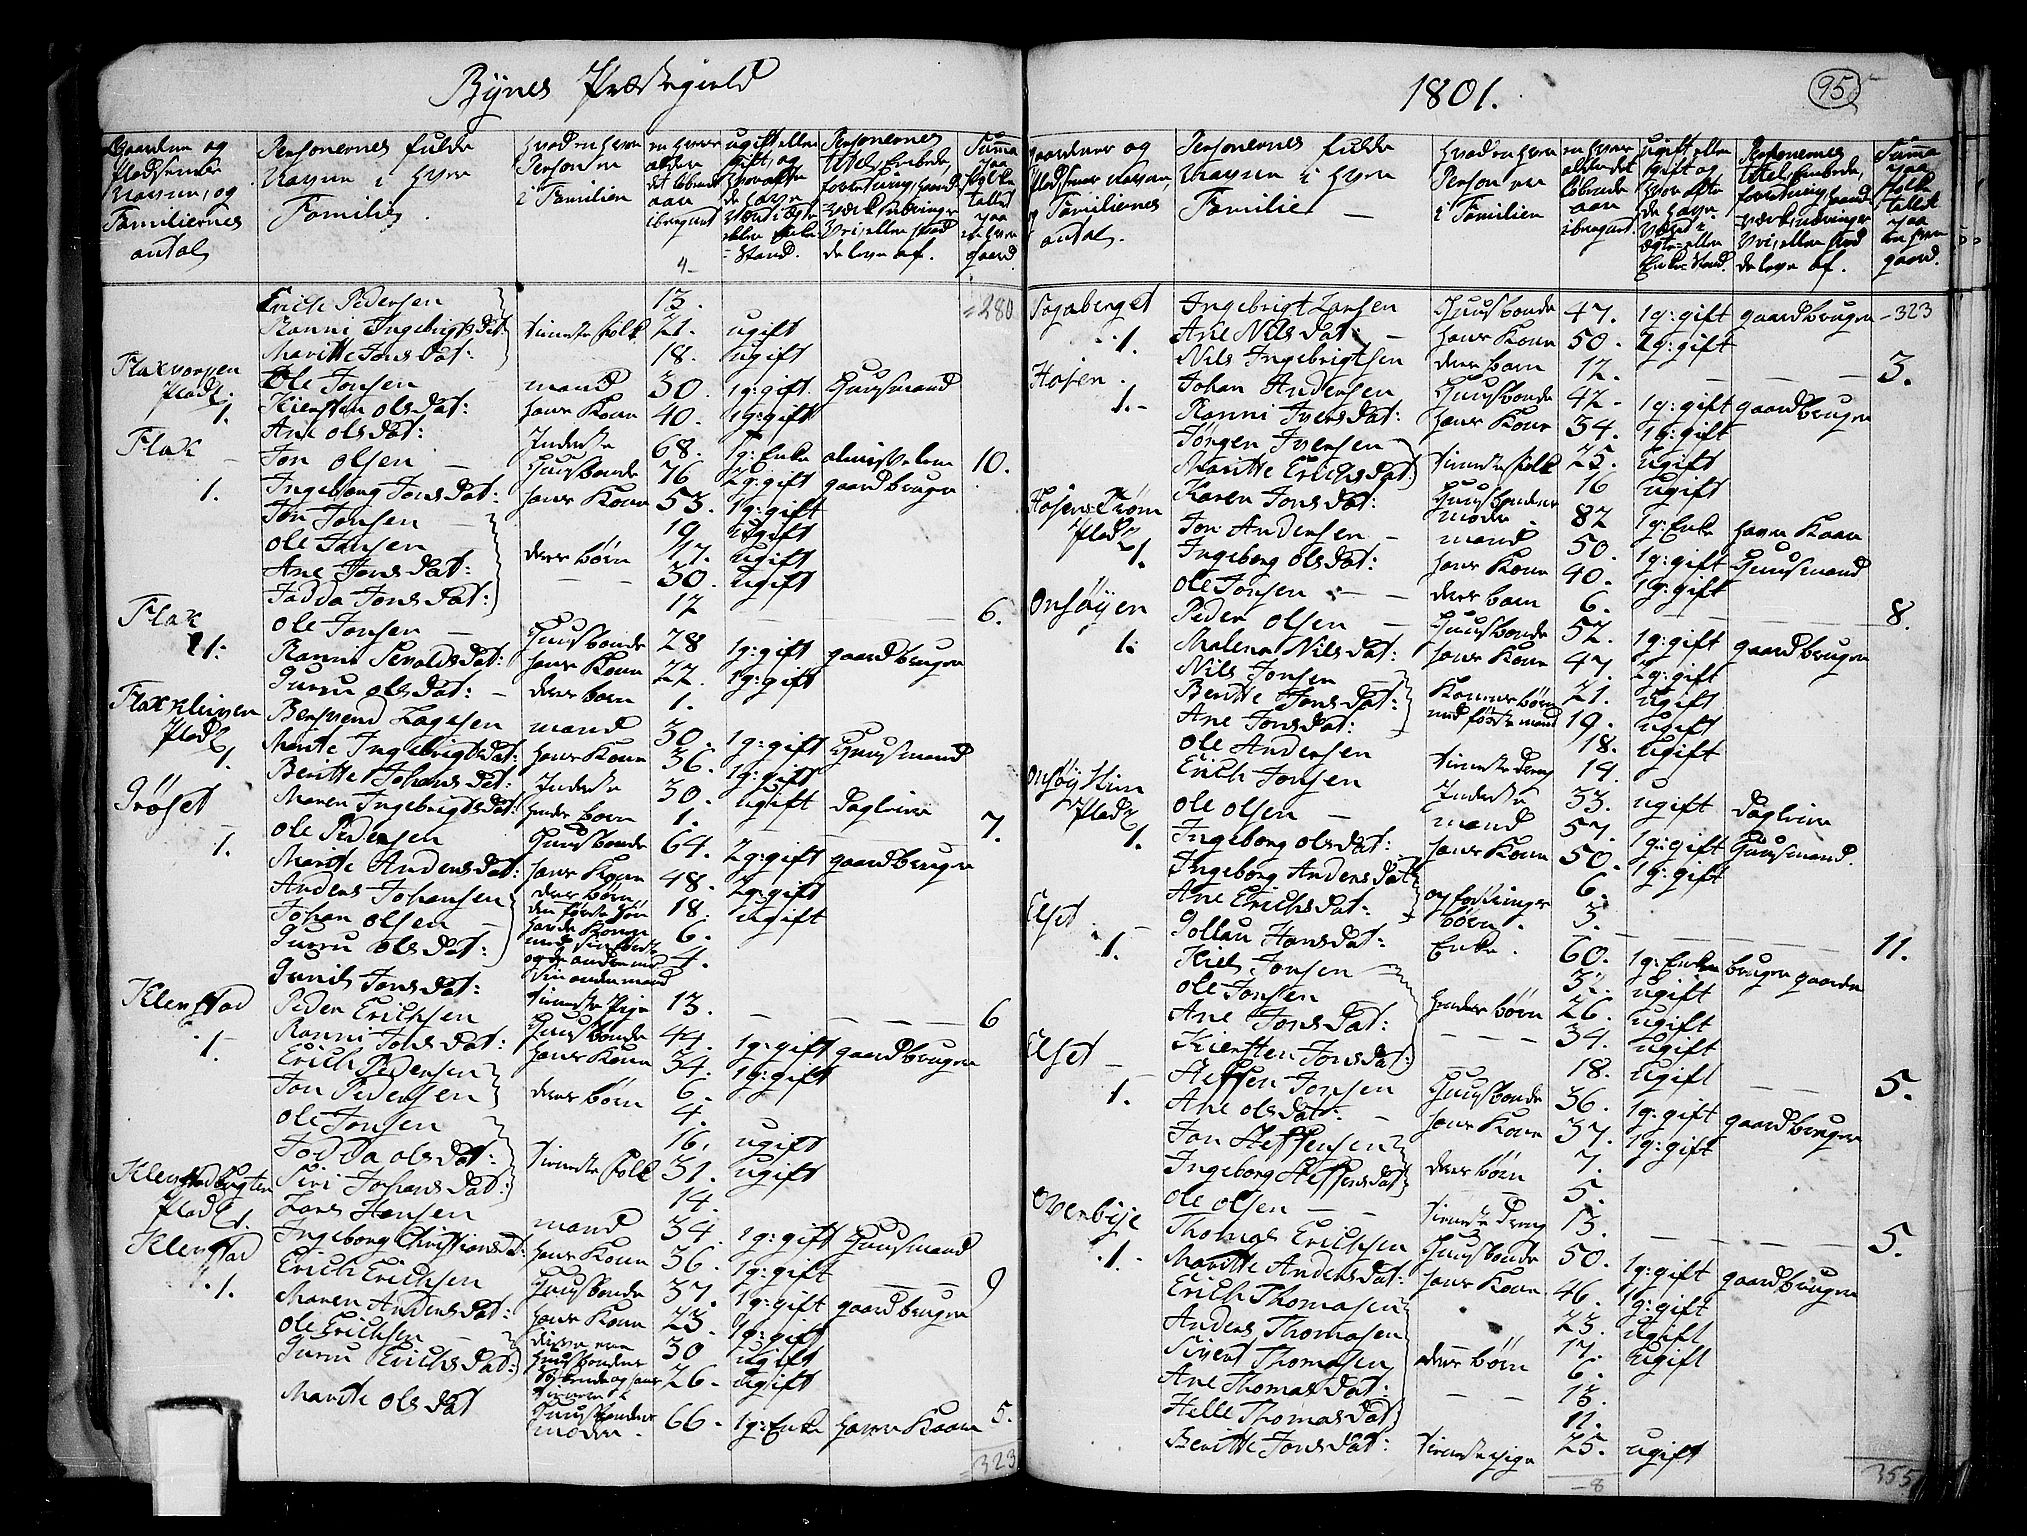 Bynes Præstegield
Gaardene og Pladsernes Navne, og Familiernes antal
Personernes fulde Navne i hver Familie
hvad en hver Person er i Familien
en hver alder det løbende aar iberegnet
ugift eller gift, og hvor ofte de have været i ægte- eller Enke-Stand.
Personernes titel, Embede, forretning, haandværk, næringsvei, eller hvad de leve af.
Summa paa folke tallet paa en hver gaard.
Erich Pedersen 13. =280
Ranni Ingebrigts Dat: tieneste folk 21. ugift
Maritte Jons Dat: 18. ugift
Flaxvongen Plads 1.
Ole Jonsen mand 30. 1g: gift Huusmand
Kiersten Ols Dat: hans Kone 40. 1g: gift
Ane Ols Dat: Inderste 68. 1g: Enke almisselem 10.
Flak 1.
Jon Olsen Huusbonde 76 2g: gift gaardbruger
Ingeborg Jons Dat: hans Kone 53. 1g: gift
Jon Jonsen 19 ugift
Ole Jonsen deres børn 17. ugift
Ane Jons Dat: 30. ugift
Jadda Jons Dat: 12 6.
Flak 1:
Ole Jonsen Huusbonde 28 1g: gift gaardbruger
Ranni Sevalds Dat: hans Kone 22. 1g: gift
Gurru Ols Dat: deres barn 1.
Flaxklingen Plads 1.
Bersvend Lagesen mand 30. 1g: gift Huusmand
Marite Ingebrigts Dat: hans Kone 36. 1g: gift
Beritte Johans Dat: Inderste 30. ugift Dagleier
Maren Ingebrigts Dat: hendes barn 1. 7.
Grøset 1.
Ole Pedersen Huusbonde 64. 2g: gift gaardbruger
Marite Anders Dat: hans Kone 48. 2g: gift
Anders Johansen deres børn den første søn 18. ugift
Johan Olsen havde Konen med sin første 6.
Gurru Ols Dat: og de andre med sin anden mand 4.
Gunild Jons Dat: tieneste Pige 13. 6
Klenstad 1.
Peder Erichsen Huusbonde 44. 1g: gift gaardbruger
Ranni Jons Dat: hans Kone 34. 1g: gift
Erich Pedersen deres børn 6.
Jon Pedersen 4.
Ole Jonsen 16. ugift
Jadda Ols Dat: tieneste folk 31. ugift
Siri Johans Dat: 14.
Klenstadbugten Plads 1.
Lars Hansen mand 34. 1g: gift Huusmand
Ingeborg Christians D: hans Kone 36. 1g: gift 9
Klenstad 1.
Erich Erichsen Huusbonde 37. 1g: gift gaardbruger
Maren Anders Dat: hans Kone 23. 1g: gift
Ole Erichsen disse ere Huusbondens 30 ugift
Gurru Erichs Dat: 26. ugift
Marite Ols Dat Huusbondens moder. 66. 1g: Enke haver Kaar 5.
=323
1801.
95
gaardenes og Pladsernes Navne, og Familiernes antal.
Personernes fulde Navne i hver Familie
hvad en hver Person er i Familien
en hver alder det løbende aar iberegnet.
Ugift eller gift og hvor ofte de have været i ægte- eller Enke-Stand.
Personernes titel, Embede, forretning, haandværk, næringsvei, eller hvad de leve af.
Summa paa folke tallet paa en hver gaard.
Togaberget 1.
Ingebrigt Larsen Huusbonde 47. 1g: gift gaardbruger 323
Ane Nils Dat: hans Kone 50. 2g: gift
Nils Ingebrigtsen deres barn 12. 3.
Hosen 1.
Johan Andersen Huusbonde 42 1g: gift gaardbruger
Ranni Ivers Dat: hans Kone 34. 1g: gift
Jørgen Iversen tieneste folk 25. ugift
Maritte Erichs Dat: 16 ugift
Karen Jons Dat: Huusbondens moder 82 1g: Enke haver Kaar
Hosens Trøen Plads 1.
Jon Andersen mand 50. 1g: gift Huusmand
Ingeborg Ols Dat: hans Kone 40. 1g: gift
Ole Jonsen deres barn 6. 8.
Onsøyen 1:
Peder Olsen Huusbonde 52. 1g: gift gaardbruger
Malena Nils Dat: hans Kone 47. 2g: gift
Nils Jonsen Konens børn med første mand 21. ugift
Beritte Jons Dat: 19. ugift
Ane Jons Dat: 18. ugift
Ole Andersen tieneste Dreng 14.
Erich Jonsen Inderste 33. ugift Dagleier
Plads 1.
Ole Olsen mand 57. 1g: gift Huusmand.
Ingeborg Ols Dat: hans Kone 50. 1g: gift
Ingeborg Anders Dat opfostrings børn 6.
Ane Erichs Dat: 3. 11.
Elset 1.
Gollau Hans Dat: Enke. 60. 1g: Enke bruger gaarden
Kiel Jonsen 32. ugift
Ole Jonsen hendes børn 26. ugift
Ane Jons Dat: 34. ugift
Kiersten Jons Dat: 18. ugift 5.
Elset 1.
Steffen Jonsen Huusbonde 36. 1g: gift gaardbruger
Ane Ols Dat: hans Kone 37. 1g: gift
Jon Steffensen deres børn 7.
Ingeborg Steffens Dat 5.
Ole Olsen tieneste Dreng 13. 5.
Overbye 1.
Thomas Erichsen Huusbonde 50. 1g: gift gaardbruger
Maritte Anders Dat: hans Kone 46. 1g: gift
Erich Thomasen 23. ugift
Anders Thomasen 17. ugift
Sivert Thomasen deres børn 6.
Ane Thomas Dat: 13.
Helle Thomas Dat 11.
Beritte Jons Dat: tienestepige 25. ugift
8
355